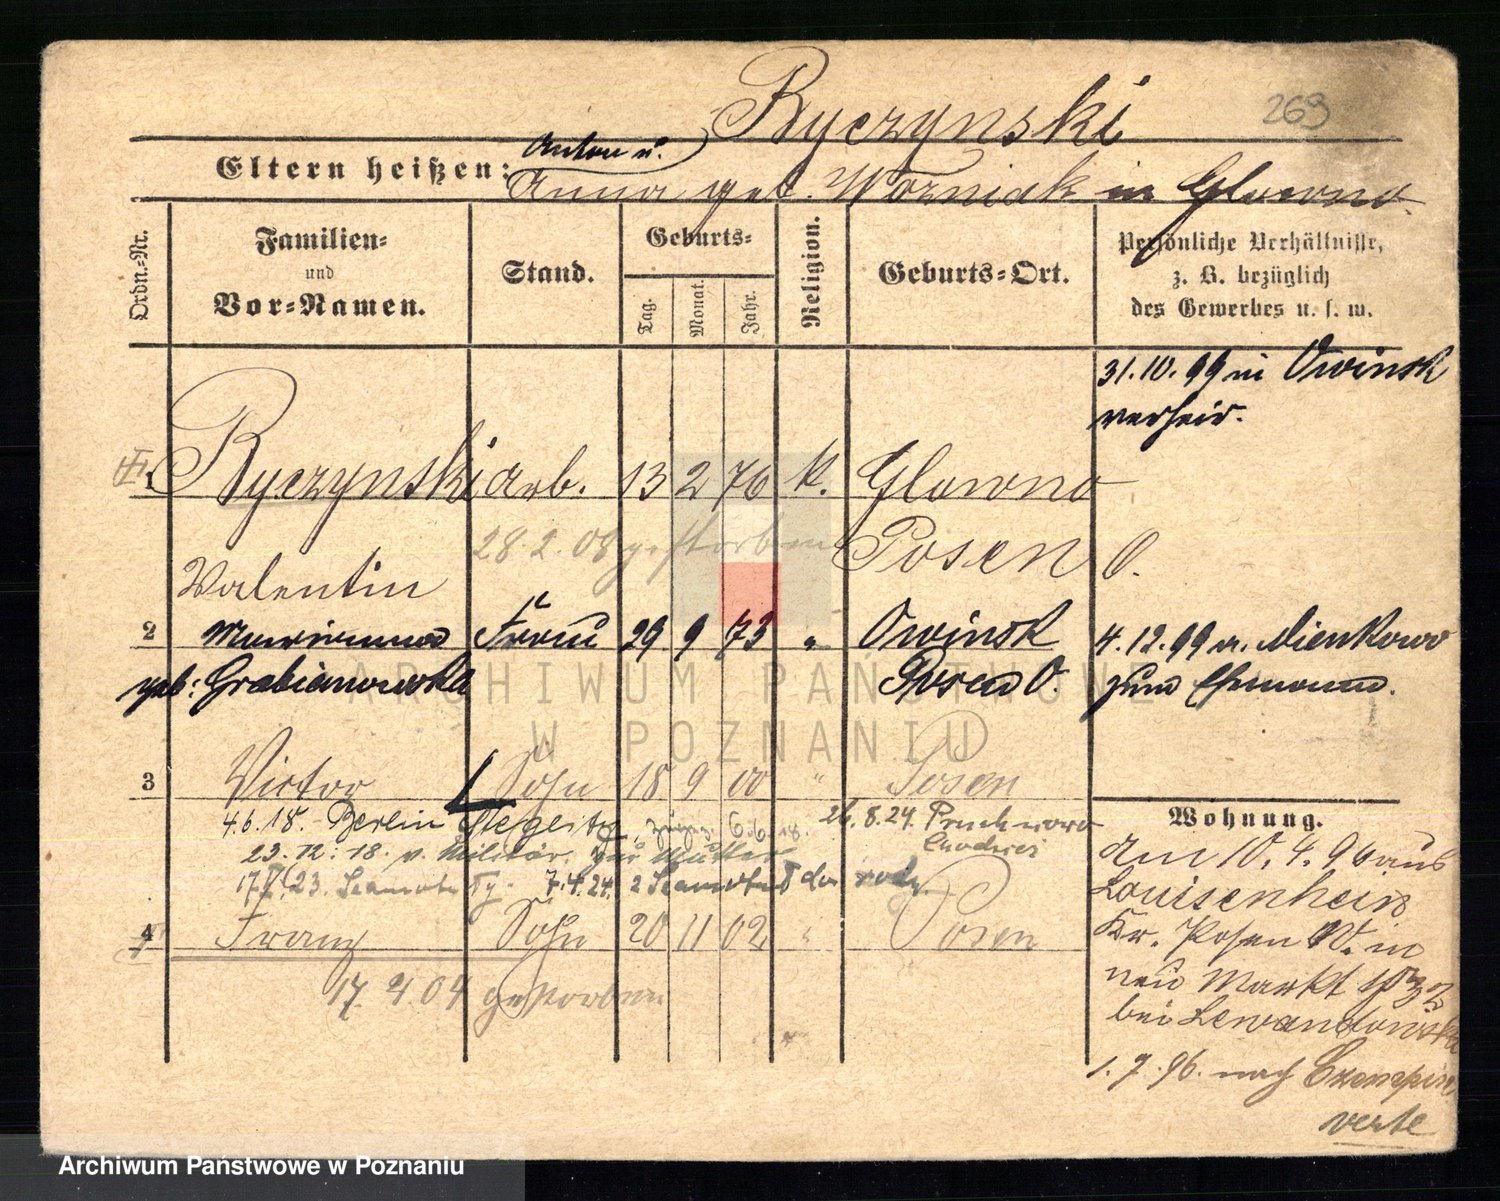 Ryczynski
269
Anton u.
Eltern heißen: Anna geb. Wozniak in Glowno.
Ordn.-Nr.
Familien-
und
Vor-Namen.
Stand.
Geburts-
Tag.
Monat.
Jahr.
Religion.
Geburts-Ort.
Persönliche Verhältnisse,
z. B. bezüglich
des Gewerbes u. s. w.
31.10.99 in Owinsk
verheir.
Ryczynski arb. 13 2 76 k. Glowno
28.2.08 gestorben Posen O.
Valentin
2 Marianna Frau 29 9 73 " Owinsk 4.12.99 a.
geb: Grabianowska Posen O. zum Ehemann.
ARCHIWUM PAŃSTWOWE
W POZNANIU
3 Victor Sohn 18 9 00 " Posen
4.6.18. Berlin Steglitz, 6.6.18. 26.8.24.
23.12.18. v. Militär. zur Mutter
7.4.24.
4 Franz Sohn 20 11 02 " Posen
17.4.04 gestorben
Wohnung.
Am 10.4.96 aus
Louisenhein
Kr. Posen W. in
neu Markt
bei Lewandowska
1.7.96. nach
verte
Archiwum Państwowe w Poznaniu